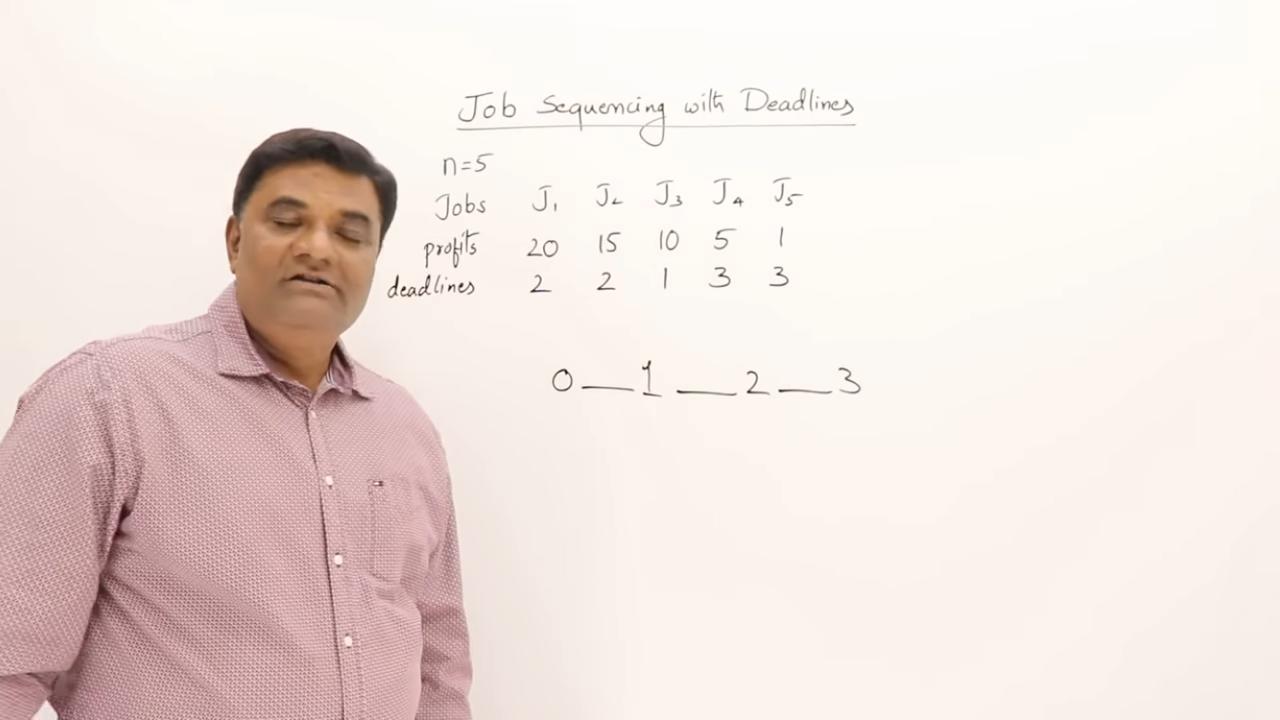 Job Sequencing with Deadlines
n=5
Jobs J₁ J₂ J₃ J₄ J₅
profits 20 15 10 5 1
deadlines 2 2 1 3 3
0 __ 1 __ 2 __ 3